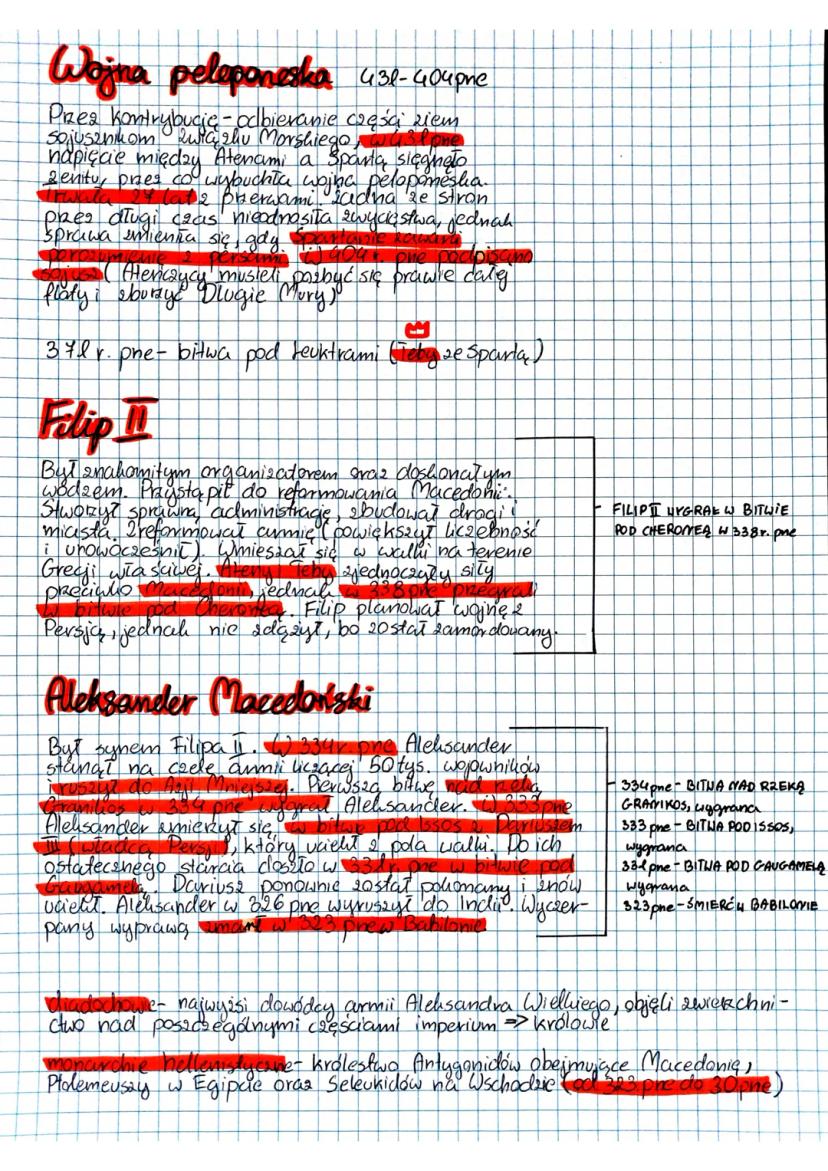 Wojna peloponeska 431-404pne
Przez kontrybucję - odbieranie części ziem
sojusznikom Związku Morskiego, w 431pne
napięcie między Atenami a Spartą sięgnęło
zenitu, przez co wybuchła wojna peloponeska.
Trwała 27 lat z przerwami. Żadna ze stron
przez długi czas nieodnosiła zwycięstwa, jednak
sprawa zmieniła się, gdy Spartanie zawarli
porozumienie z persami. W 404r. pne podpisano
sojusz (Ateńczycy musieli pozbyć się prawie całej
floty i zburzyć Długie Mury)
371 r. pne - bitwa pod Leuktrami (Teby ze Spartą)
Filip II
Był znakomitym organizatorem oraz doskonałym
wodzem. Przystąpił do reformowania Macedonii.
Stworzył sprawną administrację, zbudował drogi i
miasta. Zreformował armię (powiększył liczebność
i unowocześnił). Wmieszał się w walki na terenie
Grecji właściwej. Ateny i Teby zjednoczyły siły
przeciwko Macedonii, jednak w 338pne przegrali
w bitwie pod Cheroneą. Filip planował wojnę z
Persją, jednak nie zdążył, bo został zamordowany.
FILIP II WYGRAŁ W BITWIE
POD CHERONEĄ W 338r. pne
Aleksander Macedoński
Był synem Filipa II. W 334r. pne Aleksander
stanął na czele armii liczącej 50 tys. wojowników
i ruszył do Azji Mniejszej. Pierwszą bitwę nad rzeką
Granikos w 334 pne wygrał Aleksander. W 333pne
Aleksander zmierzył się w bitwie pod Issos z Dariuszem
III (władcą Persji), który uciekł z pola walki. Do ich
ostatecznego starcia doszło w 331r. pne w bitwie pod
Gaugamelą. Dariusz ponownie został pokonany i znów
uciekł. Aleksander w 326 pne wyruszył do Indii. Wyczer-
pany wyprawą zmarł w 323 pne w Babilonie.
334pne - BITWA NAD RZEKĄ
GRANIKOS, wygrana
333 pne - BITWA POD ISSOS,
wygrana
331 pne - BITWA POD GAUGAMELĄ
wygrana
323pne - ŚMIERĆ W BABILONIE
diadochowie - najwyżsi dowódcy armii Aleksandra Wielkiego, objęli zwierzchni-
ctwo nad poszczególnymi częściami imperium => królowie
monarchie hellenistyczne - królestwo Antygonidów obejmujące Macedonię,
Ptolemeuszy w Egipcie oraz Seleukidów na Wschodzie (od 323 pne do 30pne)